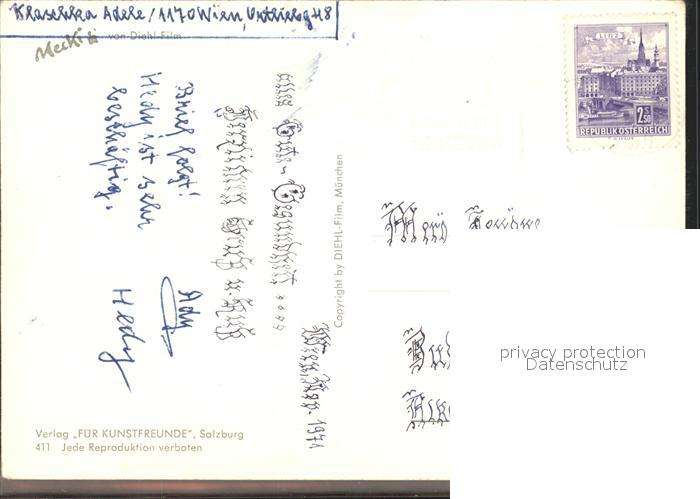 Klaschka Adele / 1170 Wien,
Mecki
von Diehl-Film
LINZ
2 S 50
REPUBLIK ÖSTERREICH
Alles Gute
Gesundheit
Herzlichen Gruß u. Kuß
Brief folgt!
Hedy ist sehr
beschäftigt.
Ady
Hedy
Wien, 1971
Copyright by DIEHL-Film, München
privacy protection
Datenschutz
Verlag „FÜR KUNSTFREUNDE", Salzburg
411 Jede Reproduktion verboten